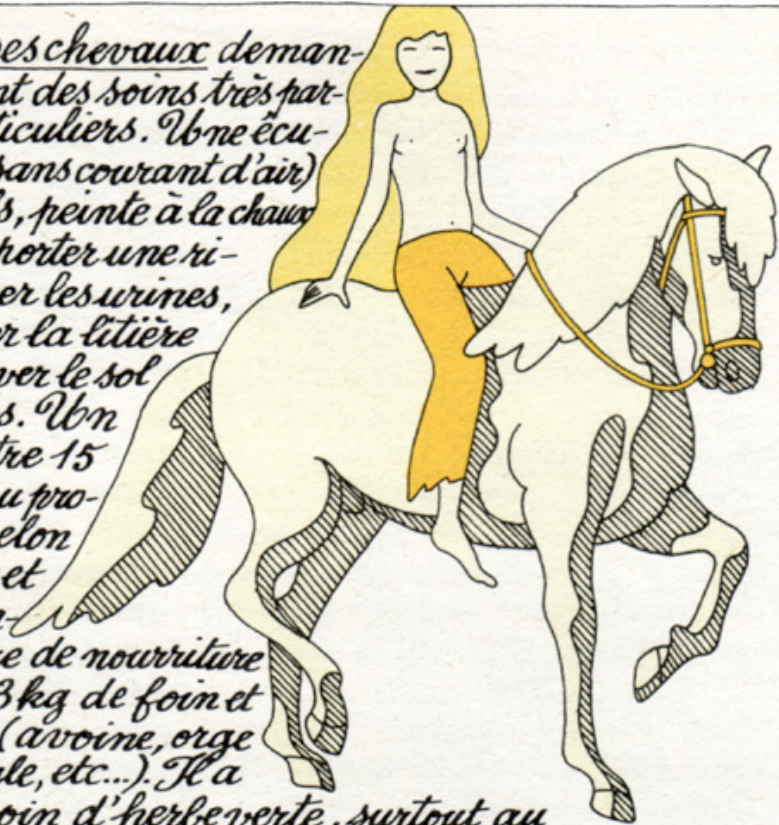 es chevaux deman-
nt des soins très par-
ticuliers. Une écu-
sans courant d'air)
s, peinte à la chaux
porter une ri-
er les urines,
er la litière
ver le sol
s. Un
tre 15
u pro-
elon
et
n-
e de nourriture
3 kg de foin et
(avoine, orge
le, etc...). Il a
oin d'herbe verte, surtout au